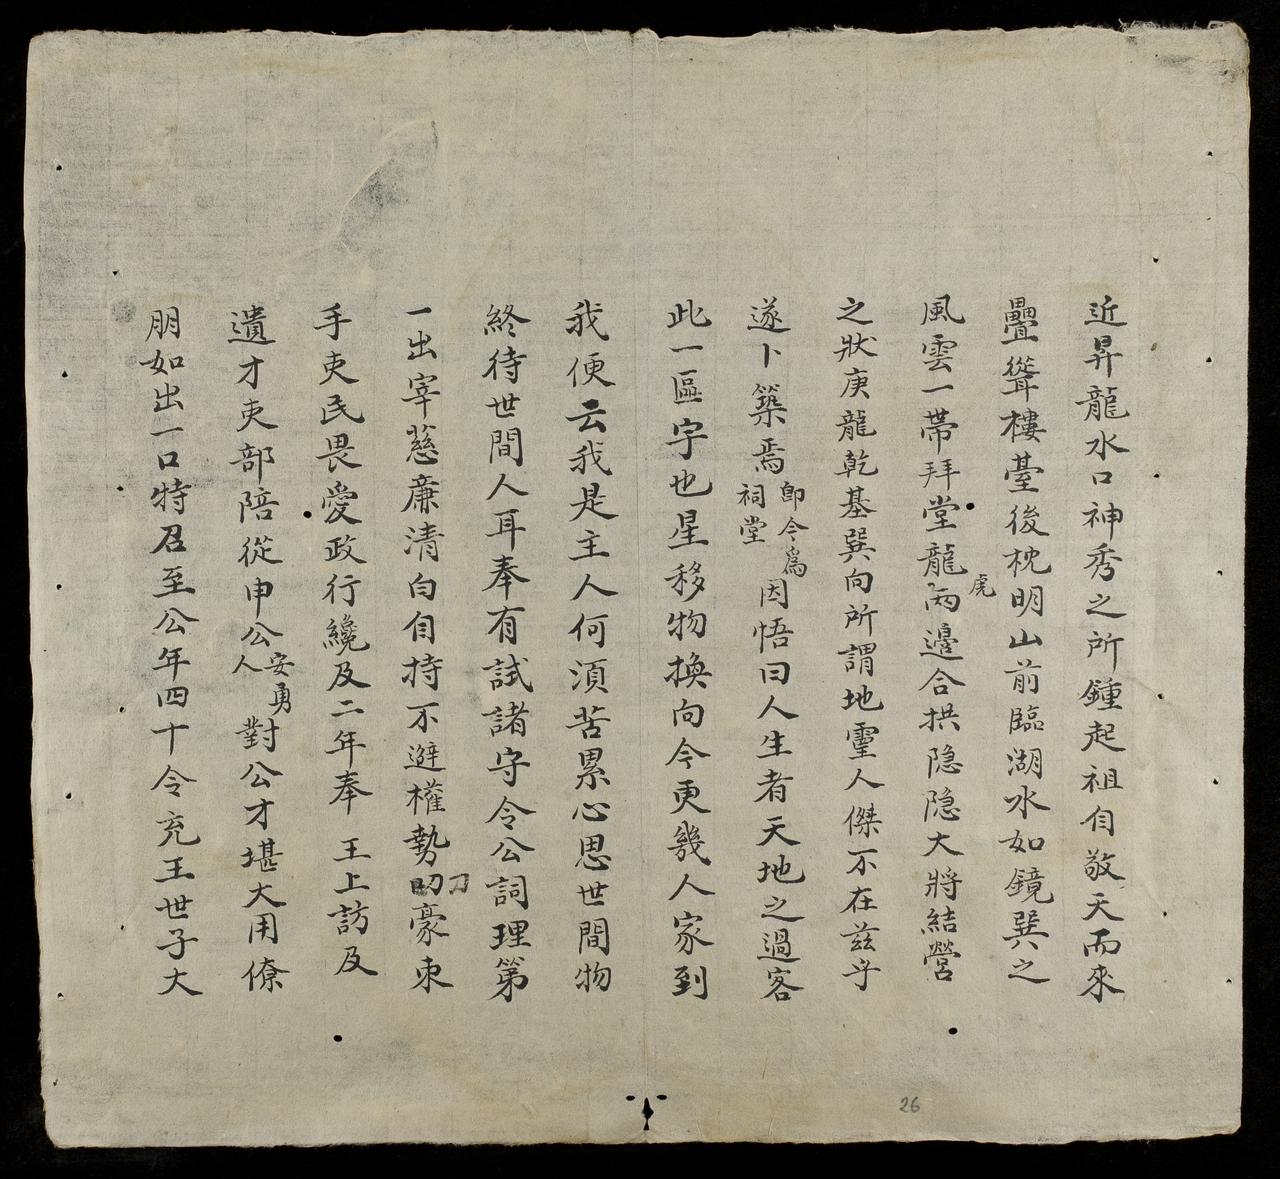 近昇龍水口神秀之所鍾起祖自敬天而來
疊聳樓臺後枕明山前臨湖水如鏡巽之
風雲一帶拜堂龍虎兩邊合拱隐隐大將結營
之狀庚龍乾基巽向所謂地靈人傑不在兹乎
遂卜築焉即今爲祠堂因悟曰人生者天地之過客
此一區字也星移物換向今更幾人家到
我便云我是主人何須苦累心思世間物
終待世間人耳奉有試諸守令公詞理第
一出宰慈廉清白自持不避權勢刁豪束
手吏民畏愛政行纔及二年奉王上訪及
遺才吏部陪從申公安勇人對公才堪大用僚
朋如出一口特召至公年四十令充王世子大
26